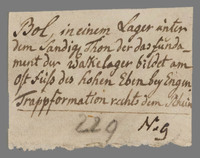 Bol, in einem Lager unter
dem Sandig. Thon der das funda-
ment der Walkelager bildet am
Ost Fuß des hohen Eben bey Engen
Trappformation rechts dem Rhein
229 No. 9